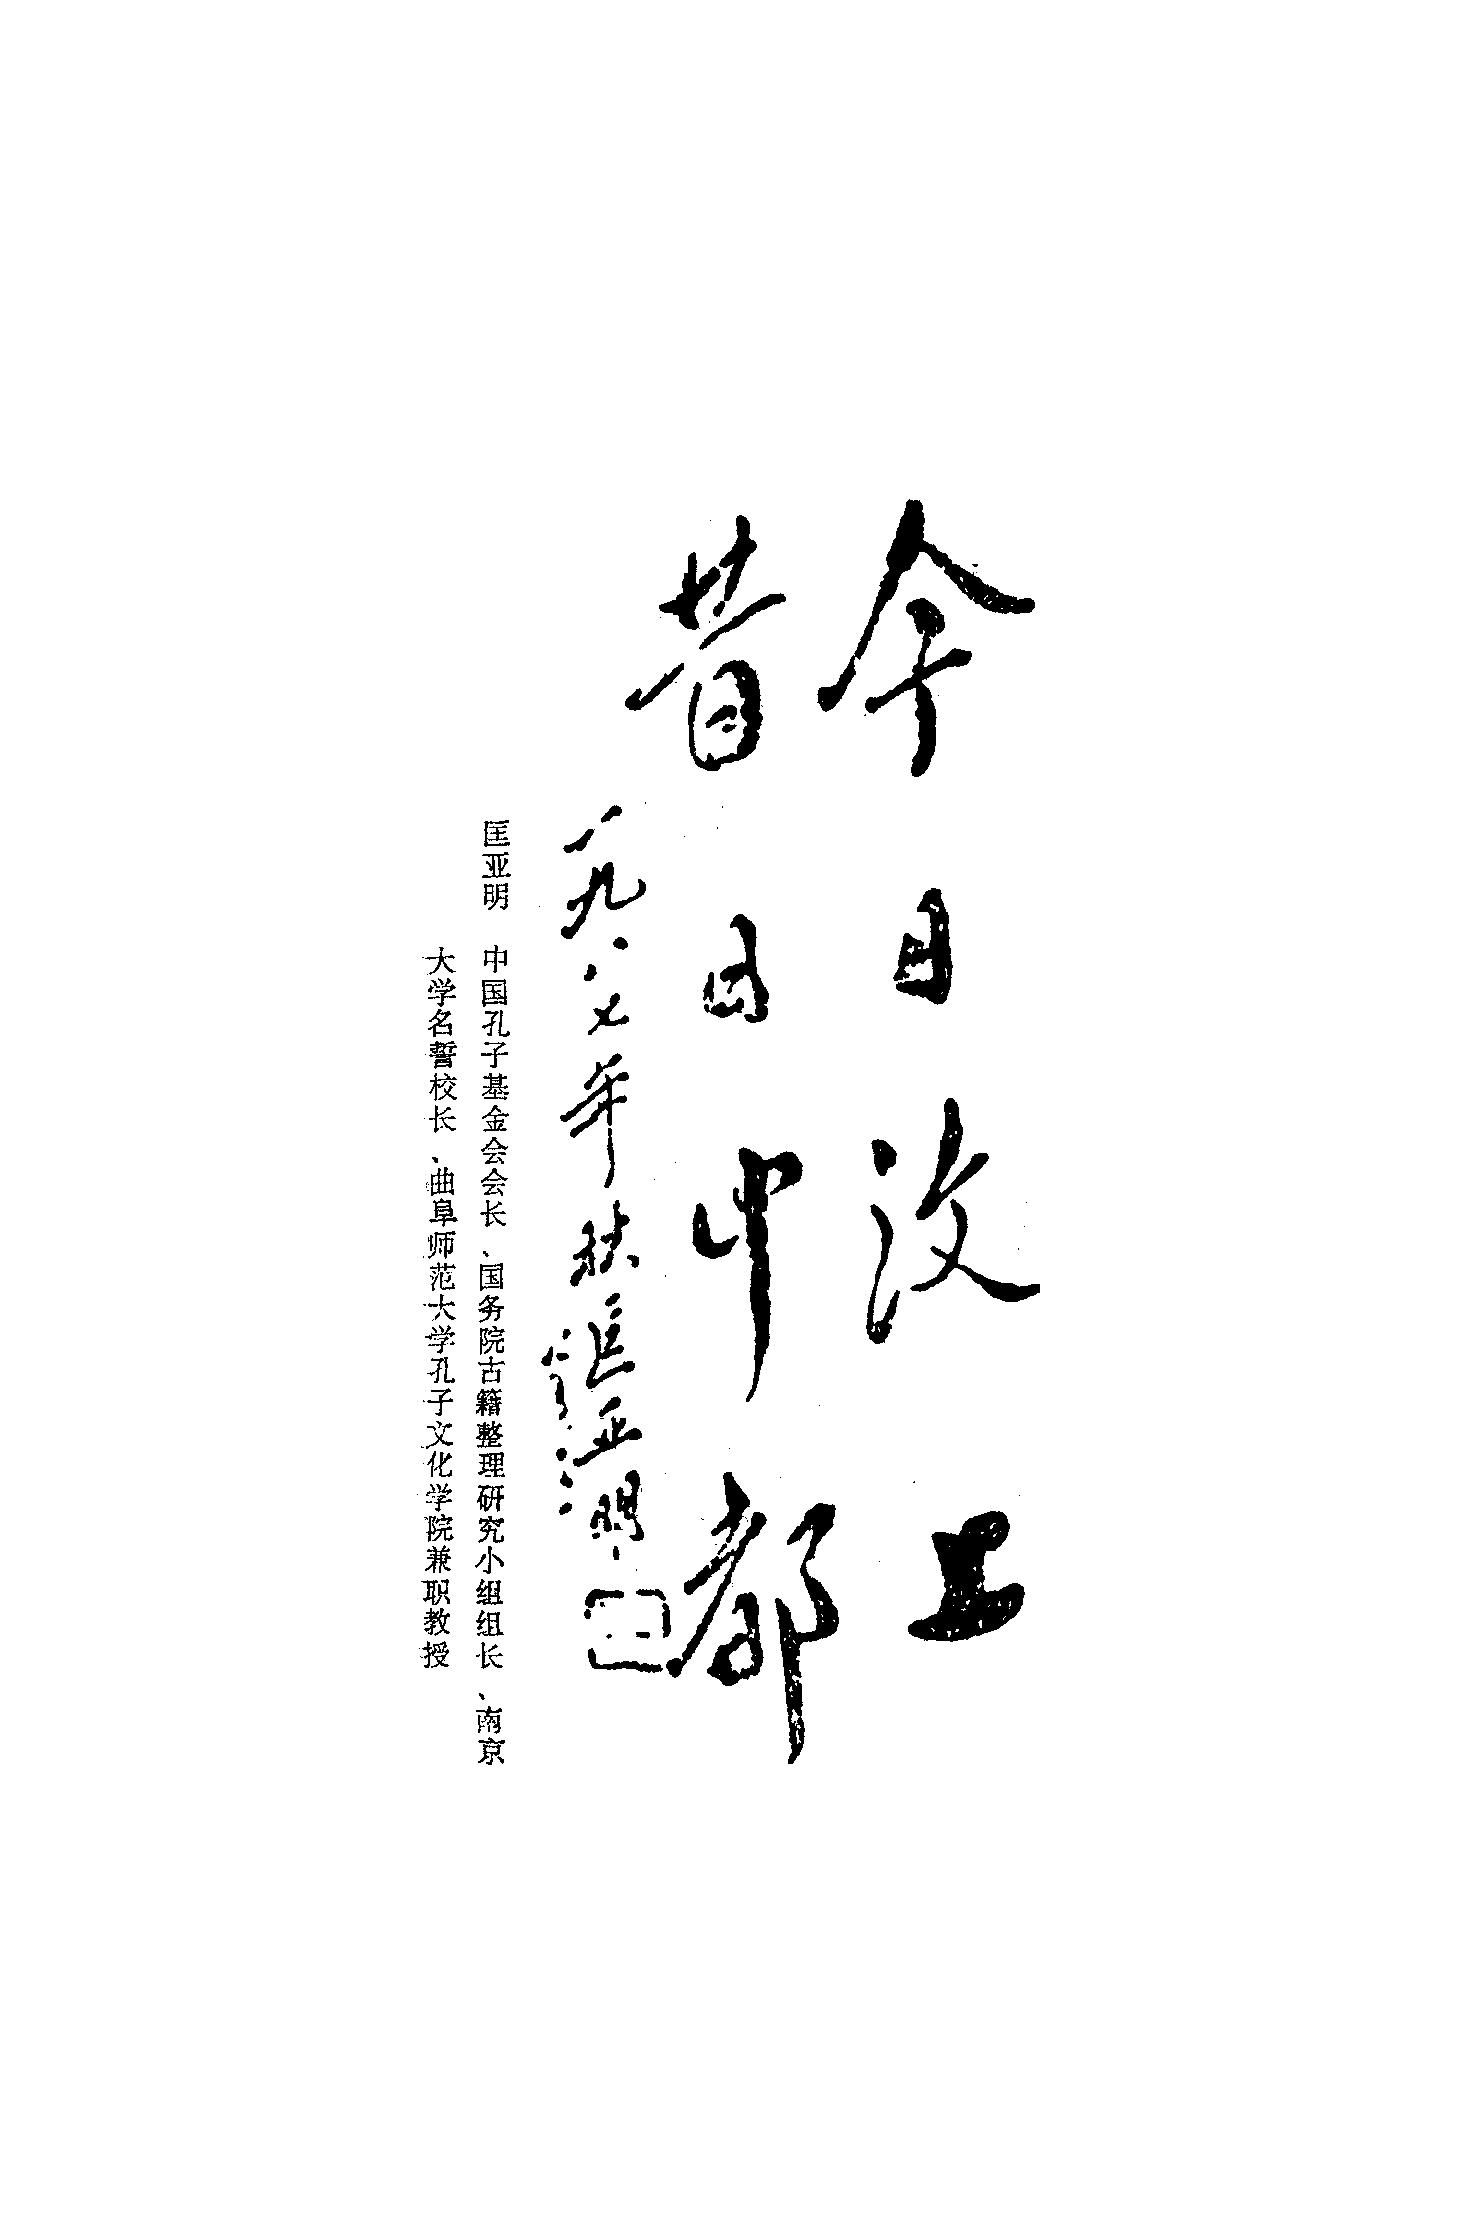 今日汶上
昔日中都
一九八七年秋匡亚明
匡亚明 中国孔子基金会会长、国务院古籍整理研究小组组长、南京
大学名誓校长、曲阜师范大学孔子文化学院兼职教授